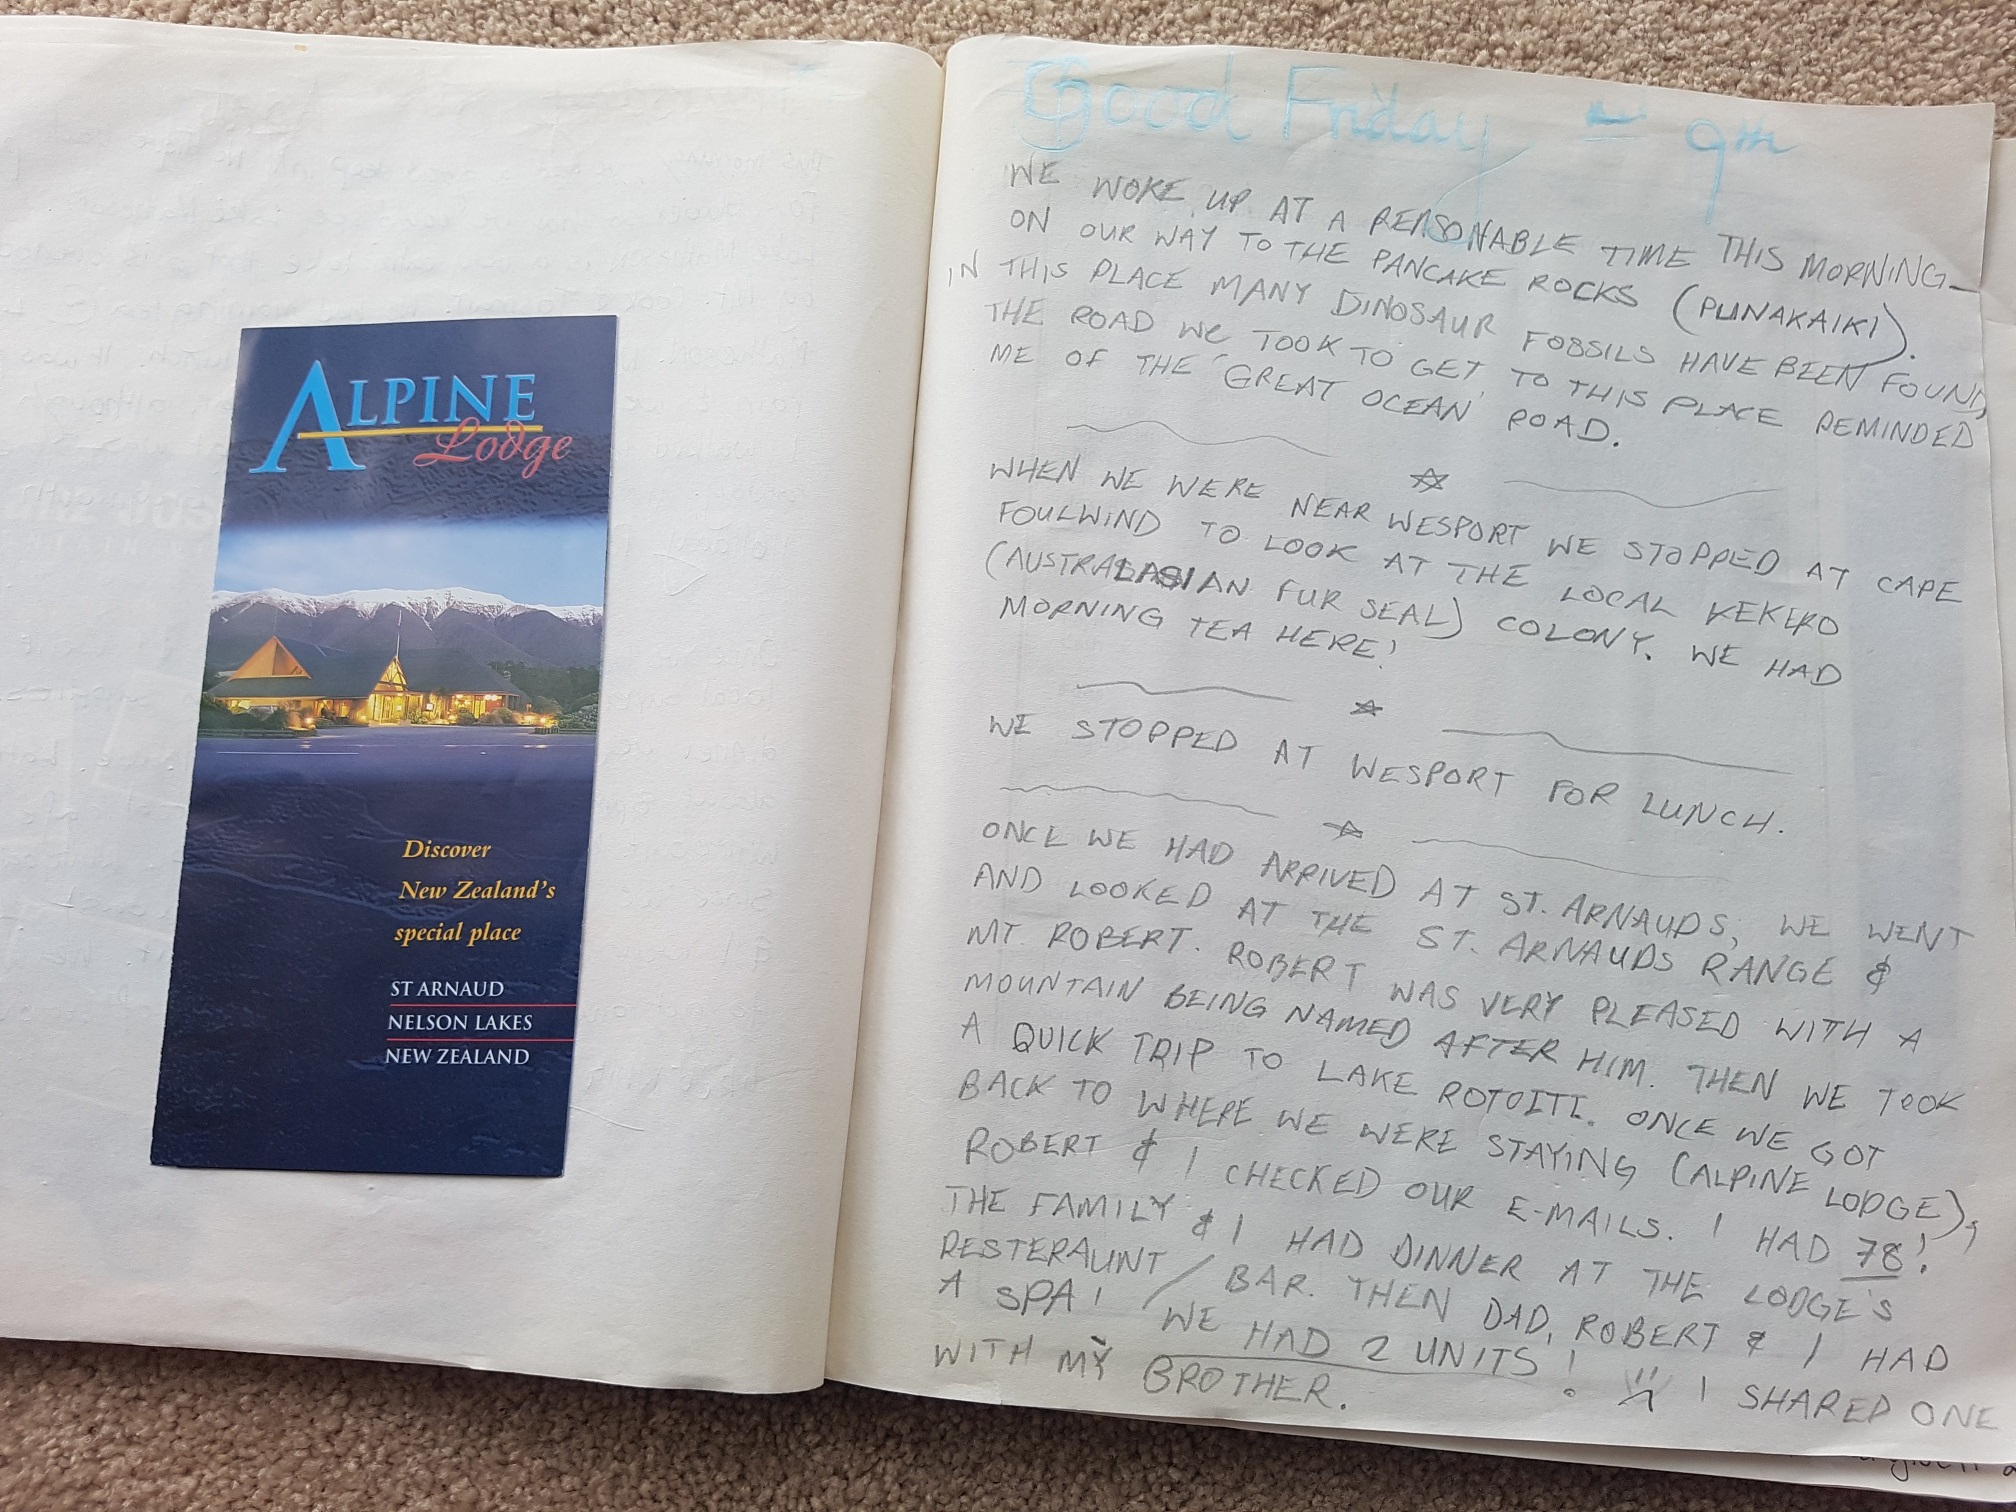 ALPINE
Lodge
Discover
New Zealand's
special place
ST ARNAUD
NELSON LAKES
NEW ZEALAND
Good Friday - 9th
WE WOKE UP AT A REASONABLE TIME THIS MORNING
ON OUR WAY TO THE PANCAKE ROCKS (PUNAKAIKI).
IN THIS PLACE MANY DINOSAUR FOSSILS HAVE BEEN FOUND,
THE ROAD WE TOOK TO GET TO THIS PLACE REMINDED
ME OF THE 'GREAT OCEAN' ROAD.
WHEN WE WERE NEAR WESPORT WE STOPPED AT CAPE
FOULWIND TO LOOK AT THE LOCAL KEKENO
(AUSTRALASIAN FUR SEAL) COLONY. WE HAD
MORNING TEA HERE!
WE STOPPED AT WESPORT FOR LUNCH.
ONCE WE HAD ARRIVED AT ST. ARNAUDS, WE WENT
AND LOOKED AT THE ST. ARNAUDS RANGE &
MT. ROBERT. ROBERT WAS VERY PLEASED WITH A
MOUNTAIN BEING NAMED AFTER HIM. THEN WE TOOK
A QUICK TRIP TO LAKE ROTOITI. ONCE WE GOT
BACK TO WHERE WE WERE STAYING (ALPINE LODGE),
ROBERT & I CHECKED OUR E-MAILS. I HAD 78!
THE FAMILY & I HAD DINNER AT THE LODGE'S
RESTERAUNT / BAR. THEN DAD, ROBERT & I HAD
A SPA! WE HAD 2 UNITS! I SHARED ONE
WITH MY BROTHER.